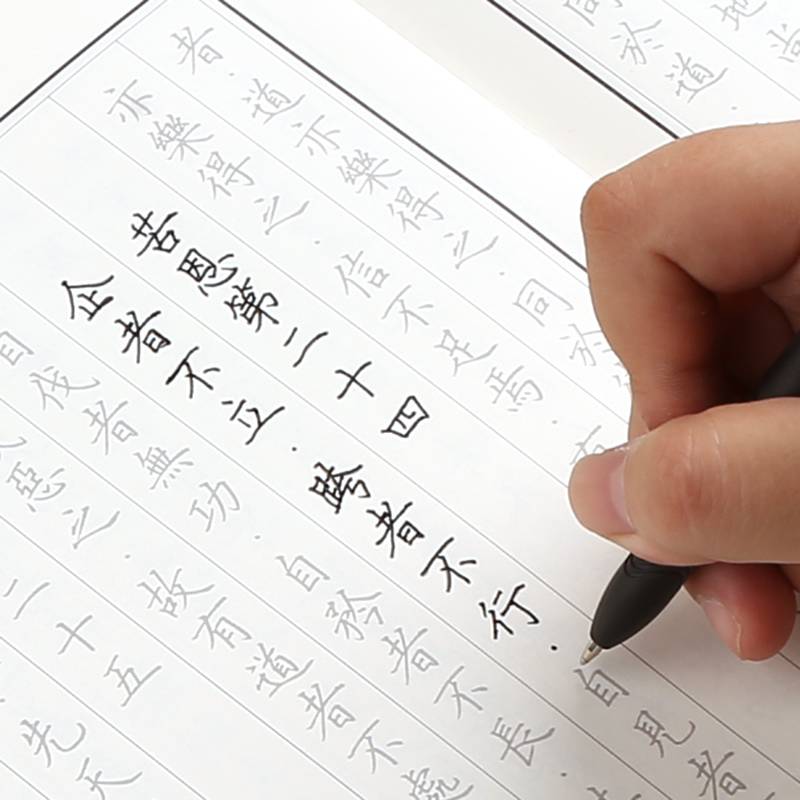 地
尚
同於道.
者.道亦樂得之.同於
亦樂得之.信不足焉.有
苦恩第二十四
企者不立.跨者不行.自見者
自伐者無功.自矜者不長.
惡之.故有道者不處
二十五
先天